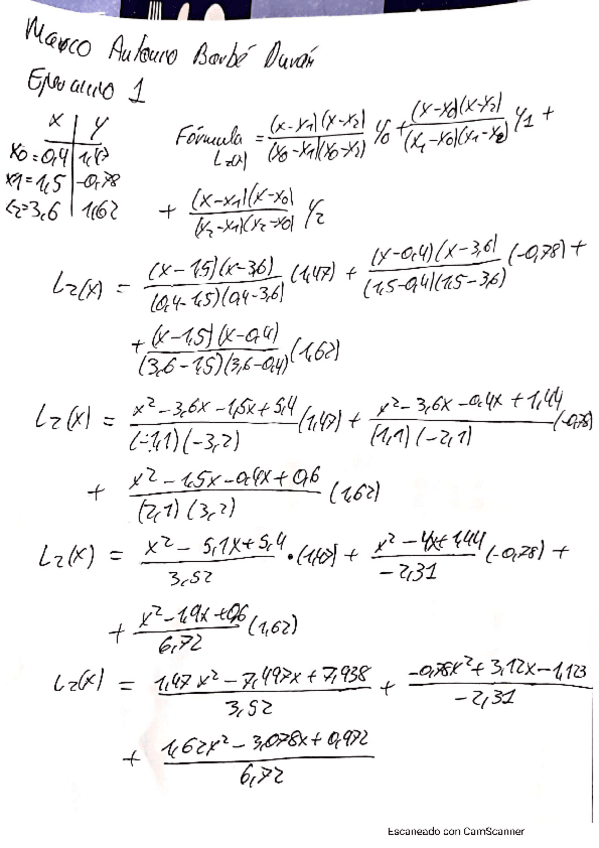 Marco Antonio Barbé Durán
Ejercicio 1
x | y
x0=0,4 | 1,47
x1=1,5 | -0,78
x2=3,6 | 1,62
Fórmula L2(x) = (x-x1)(x-x2)/(x0-x1)(x0-x2) y0 + (x-x0)(x-x2)/(x1-x0)(x1-x2) y1 +
+ (x-x1)(x-x0)/(x2-x1)(x2-x0) y2
L2(x) = (x-1,5)(x-3,6)/(0,4-1,5)(0,4-3,6) (1,47) + (x-0,4)(x-3,6)/(1,5-0,4)(1,5-3,6) (-0,78) +
+ (x-1,5)(x-0,4)/(3,6-1,5)(3,6-0,4) (1,62)
L2(x) = x²-3,6x-1,5x+5,4/(-1,1)(-3,2) (1,47) + x²-3,6x-0,4x+1,44/(1,1)(-2,1) (-0,78)
+ x²-1,5x-0,4x+0,6/(2,1)(3,2) (1,62)
L2(x) = x²-5,1x+5,4/3,52 · (1,47) + x²-4x+1,44/-2,31 (-0,78) +
+ x²-1,9x+0,6/6,72 (1,62)
L2(x) = 1,47x²-7,497x+7,938/3,52 + -0,78x²+3,12x-1,123/-2,31
+ 1,62x²-3,078x+0,972/6,72
Escaneado con CamScanner